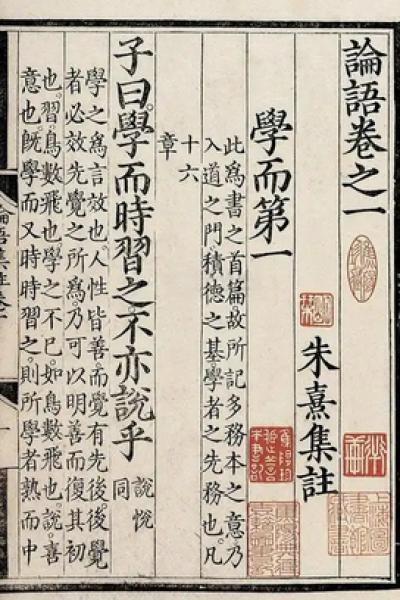 論語卷之一
朱熹集註
學而第一
此爲書之首篇故所記多務本之意乃
入道之門積德之基學者之先務也凡
十六
章
子曰。學而時習之。不亦說乎
說悅
同
學之爲言效也。人性皆善。而覺有先後。後覺
者必效先覺之所爲。乃可以明善而復其初
也。習。鳥數飛也。學之不已。如鳥數飛也。說。喜
意也。旣學而又時時習之。則所學者熟而中